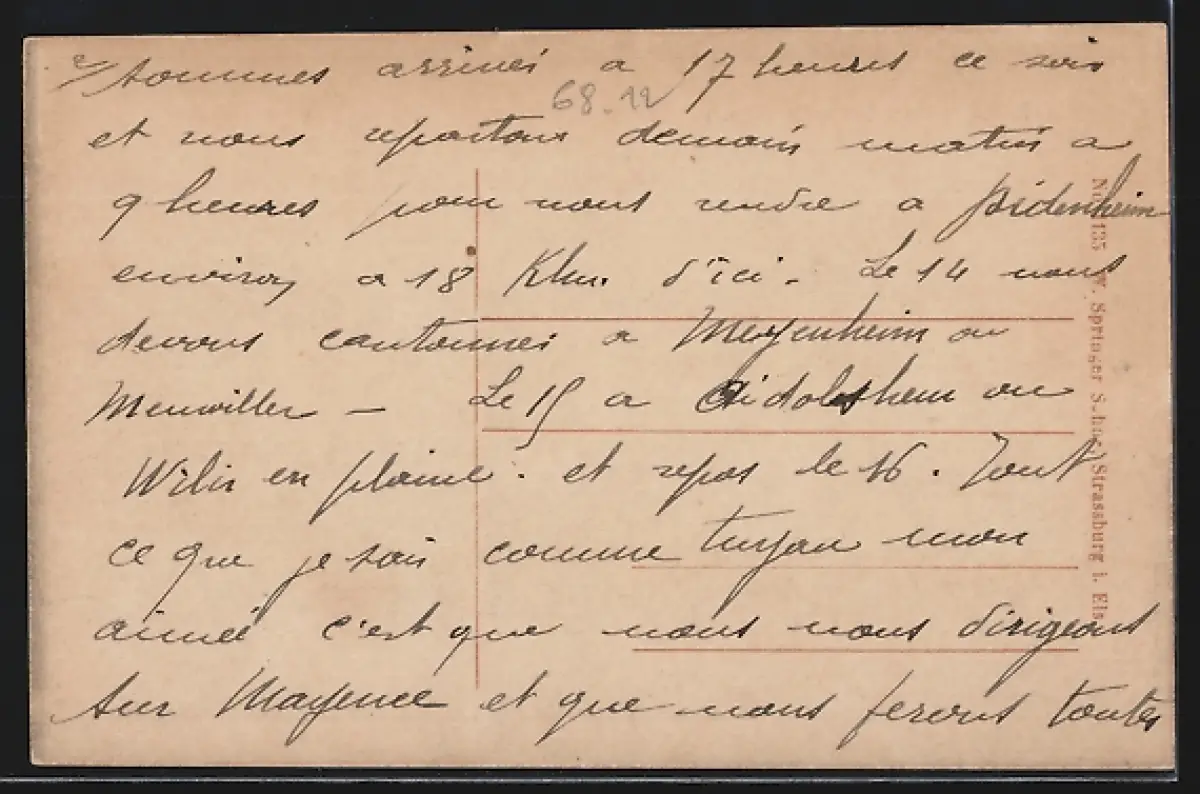 2/ sommes arrivés a 17 heures ce soir
68.22
et nous repartons demain matin a
9 heures pour nous rendre a
environ a 18 Klm. d'ici. Le 14 nous
devons cantonner a Meyenheim ou
Le 15 a ou
en plaine. et repos le 16. Tout
ce que je sais comme mon
aimée c'est que nous nous dirigeons
sur Mayence et que nous ferons toutes
No. 135 W. Springer Strassburg i. Els.